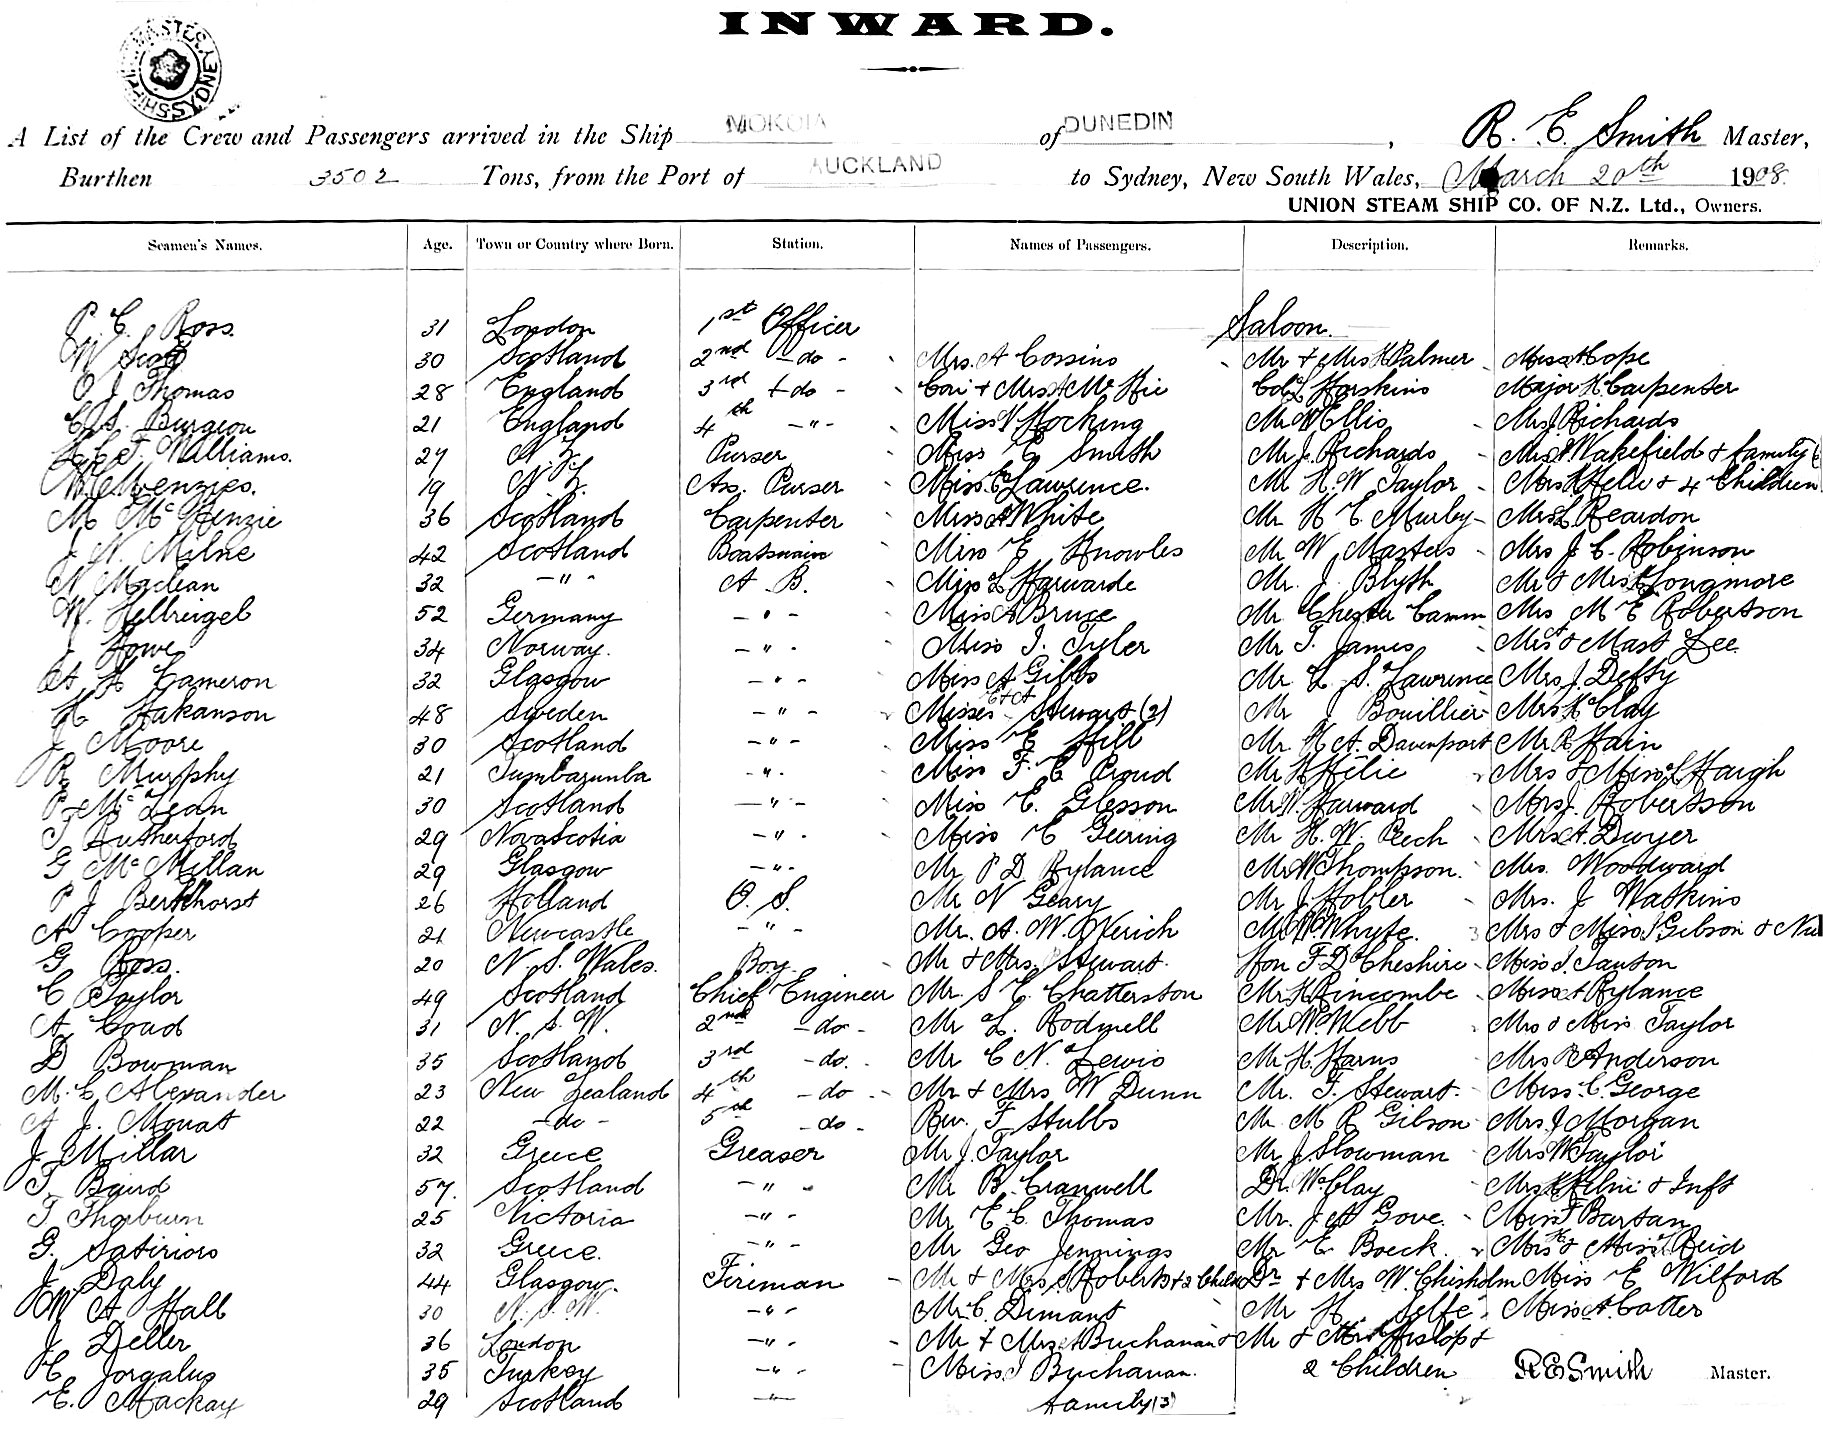 INWARD.
SHIPPING MASTER SYDNEY
A List of the Crew and Passengers arrived in the Ship MOKOIA of DUNEDIN, R. E. Smith Master,
Burthen 3502 Tons, from the Port of AUCKLAND to Sydney, New South Wales, March 20th 1908.
UNION STEAM SHIP CO. OF N.Z. Ltd., Owners.
Seamen's Names. Age. Town or Country where Born. Station. Names of Passengers. Description. Remarks.
P. C. Ross 31 London 1st Officer Saloon.
W Scott 30 Scotland 2nd - do - Mrs. A Cossins Mr & Mrs Palmer Miss Cope
O J Thomas 28 England 3rd - do - & Mrs Col. Hoskins Major H. Carpenter
C. S. Burgeon 21 England 4th - " - Miss V. Hocking Mr W Ellis Mrs J Richards
Williams. 27 N. Z. Purser Miss E Smith Mr J. Richards Wakefield & family
Menzies. 19 N Z. Ass. Purser Miss E Lawrence. Mr H. W Taylor Mrs & 4 Children
M McKenzie 36 Scotland Carpenter Miss A White Mr H E Murby Mrs L Reardon
J. N. Milne 42 Scotland Boatswain Miss E Knowles Mr W Masters Mrs J. C. Robinson
N. Maclean 32 - " - A B. Miss L Harwarde Mr. J. Blyth Mr & Mrs Longmore
W. Helbreigel 52 Germany - " - Miss A Bruce Mr Chester Camm Mrs M E Robertson
J Howe 34 Norway. - " - Miss I. Tyler Mr T. James Mrs & Mast Lee
A H Cameron 32 Glasgow - " - Miss A Gibbs Mr L. S. Lawrence Mrs J. Deffy
H Hakanson 48 Sweden - " - Misses E & A Stewart (2) Mr J Bouillier Mrs H Clay
J Moore 30 Scotland - " - Miss E Hill Mr. H A. Davenport Mr R Hain
R Murphy 21 Tumbarumba - " - Miss F. C Proud Mr H Helie Mrs & Miss L Haugh
P. McLean 30 Scotland - " - Miss E. Glesson Mr W. Harward Mrs J. Robertson
T Rutherford 29 Nova Scotia - " - Miss C Geering Mr H. W. Rech Mrs A. Dwyer
G McMillan 29 Glasgow - " - Mr P D Rylance Mr W Thompson. Mrs. Woodward
P J Berkhorst 26 Holland O. S. Mr N Geary Mr J Hobler Mrs. J Watkins
A Cooper 21 Newcastle - " - Mr. A. W. Mr W Whyte. Mrs & Miss J Gibson &
G Ross. 20 N. S. Wales. Boy Mr & Mrs. Stewart. Hon F D Cheshire Miss J. Tauton
C Taylor 49 Scotland Chief Engineer Mr. S E. Chatterston Mr H Pincombe Miss A Rylance
A Coad 31 N. S. W. 2nd - do - Mr L. Rodwell Mr W Webb Mrs & Miss Taylor
D Bowman 35 Scotland 3rd - do. Mr C N. Lewis Mr H. Harris Mrs R Anderson
M. C Alexander 23 New Zealand 4th - do - Mr & Mrs W Dunn Mr. F. Stewart. Miss C. George
A J. Mouat 22 - do - 5th - do - Rev. F Stubbs Mr M R Gibson Mrs J Morgan
J Millar 32 Greece Greaser Mr J. Taylor Mr J Slowman Mrs W Taylor
T. Baird 57. Scotland - " - Mr B. Cranwell Dr. W Clay Mrs & Inft
T Thorburn 25 Victoria - " - Mr E C. Thomas Mr. J A Gove. Miss F Bartan
G. Satiriors 32 Greece. - " - Mr Geo Jennings Mr E Boeck. Mrs H & Miss Reid
J. Daly 44 Glasgow. Fireman Mr & Mrs S Roberts & 2 Dr & Mrs W. Chisholm Miss E Wilford
W A Hall 30 N. S. W. - " - Mr C. Dimant Mr H. Jelfe Miss A. Cotter
J Deller 36 London - " - Mr & Mrs A Buchanan & Mr & Mrs Hislop &
C Jorgalus 35 Turkey - " - Miss J Buchanan. 2 Children R E Smith Master.
E. Mackay 29 Scotland - " - family (3)